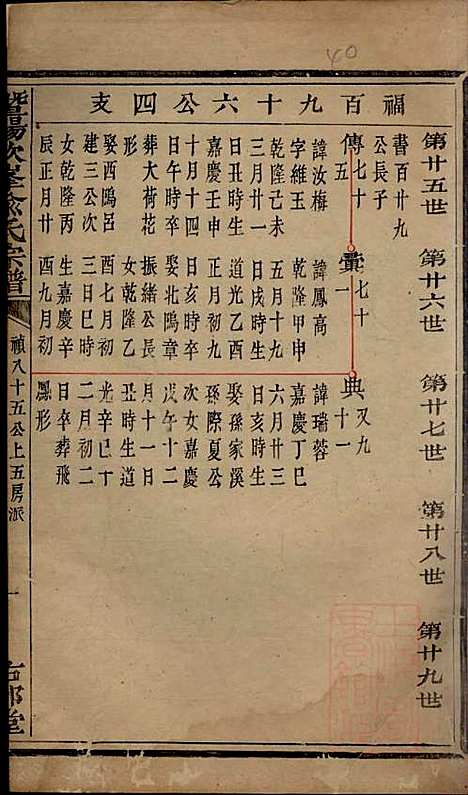 福百九十六公四支
第廿五世
書百廿九
公長子
傳七十五
諱汝梅
字維玉
乾隆壬
三月廿一
日丑時生
嘉慶壬申
十月十四
日午時卒
葬大荷花
形
娶西鴎呂
建三公次
女乾隆丙
辰正月廿
第廿六世
彙七十一
諱鳳高
乾隆甲申
五月十九
日戌時生
道光乙酉
正月初九
日亥時卒
娶北鴎章
振緒公長
女乾隆乙
酉七月初
三日巳時
生嘉慶辛
酉九月初
第廿七世
典又九十一
諱瑞蓉
嘉慶丁巳
六月廿三
日亥時生
娶孫家溪
孫際夏公
次女嘉慶
戊午十二
月十一日
丑時生道
光辛巳十
二月初二
日卒葬飛
鳳形
第廿八世
第廿九世
暨陽次峯俞氏宗譜
禎八十五公上五房派
一
40